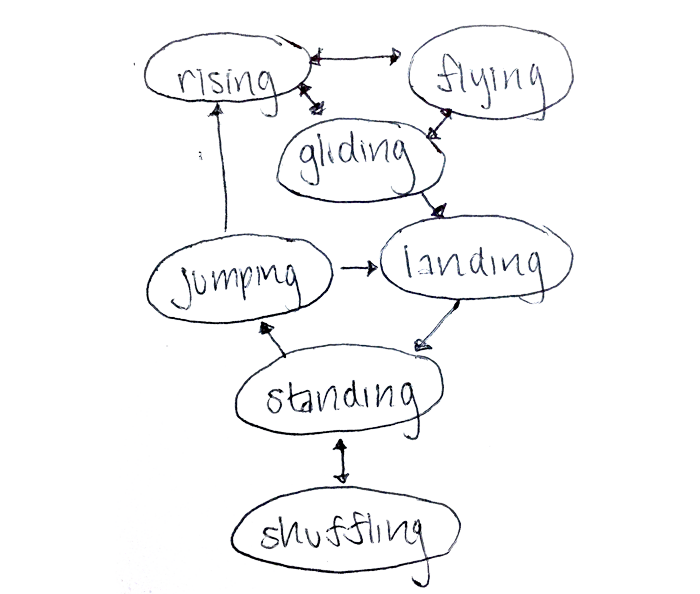 rising
flying
gliding
jumping
landing
standing
shuffling